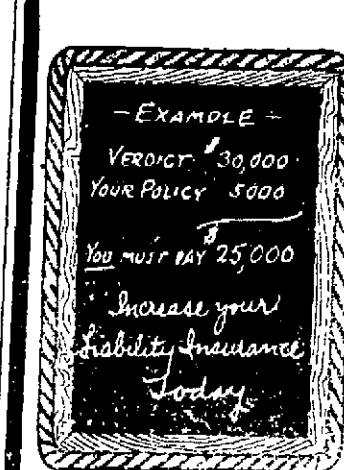 - EXAMPLE -
VERDICT $30,000
YOUR POLICY 5000
YOU MUST PAY $25,000
Increase your
Liability Insurance
Today